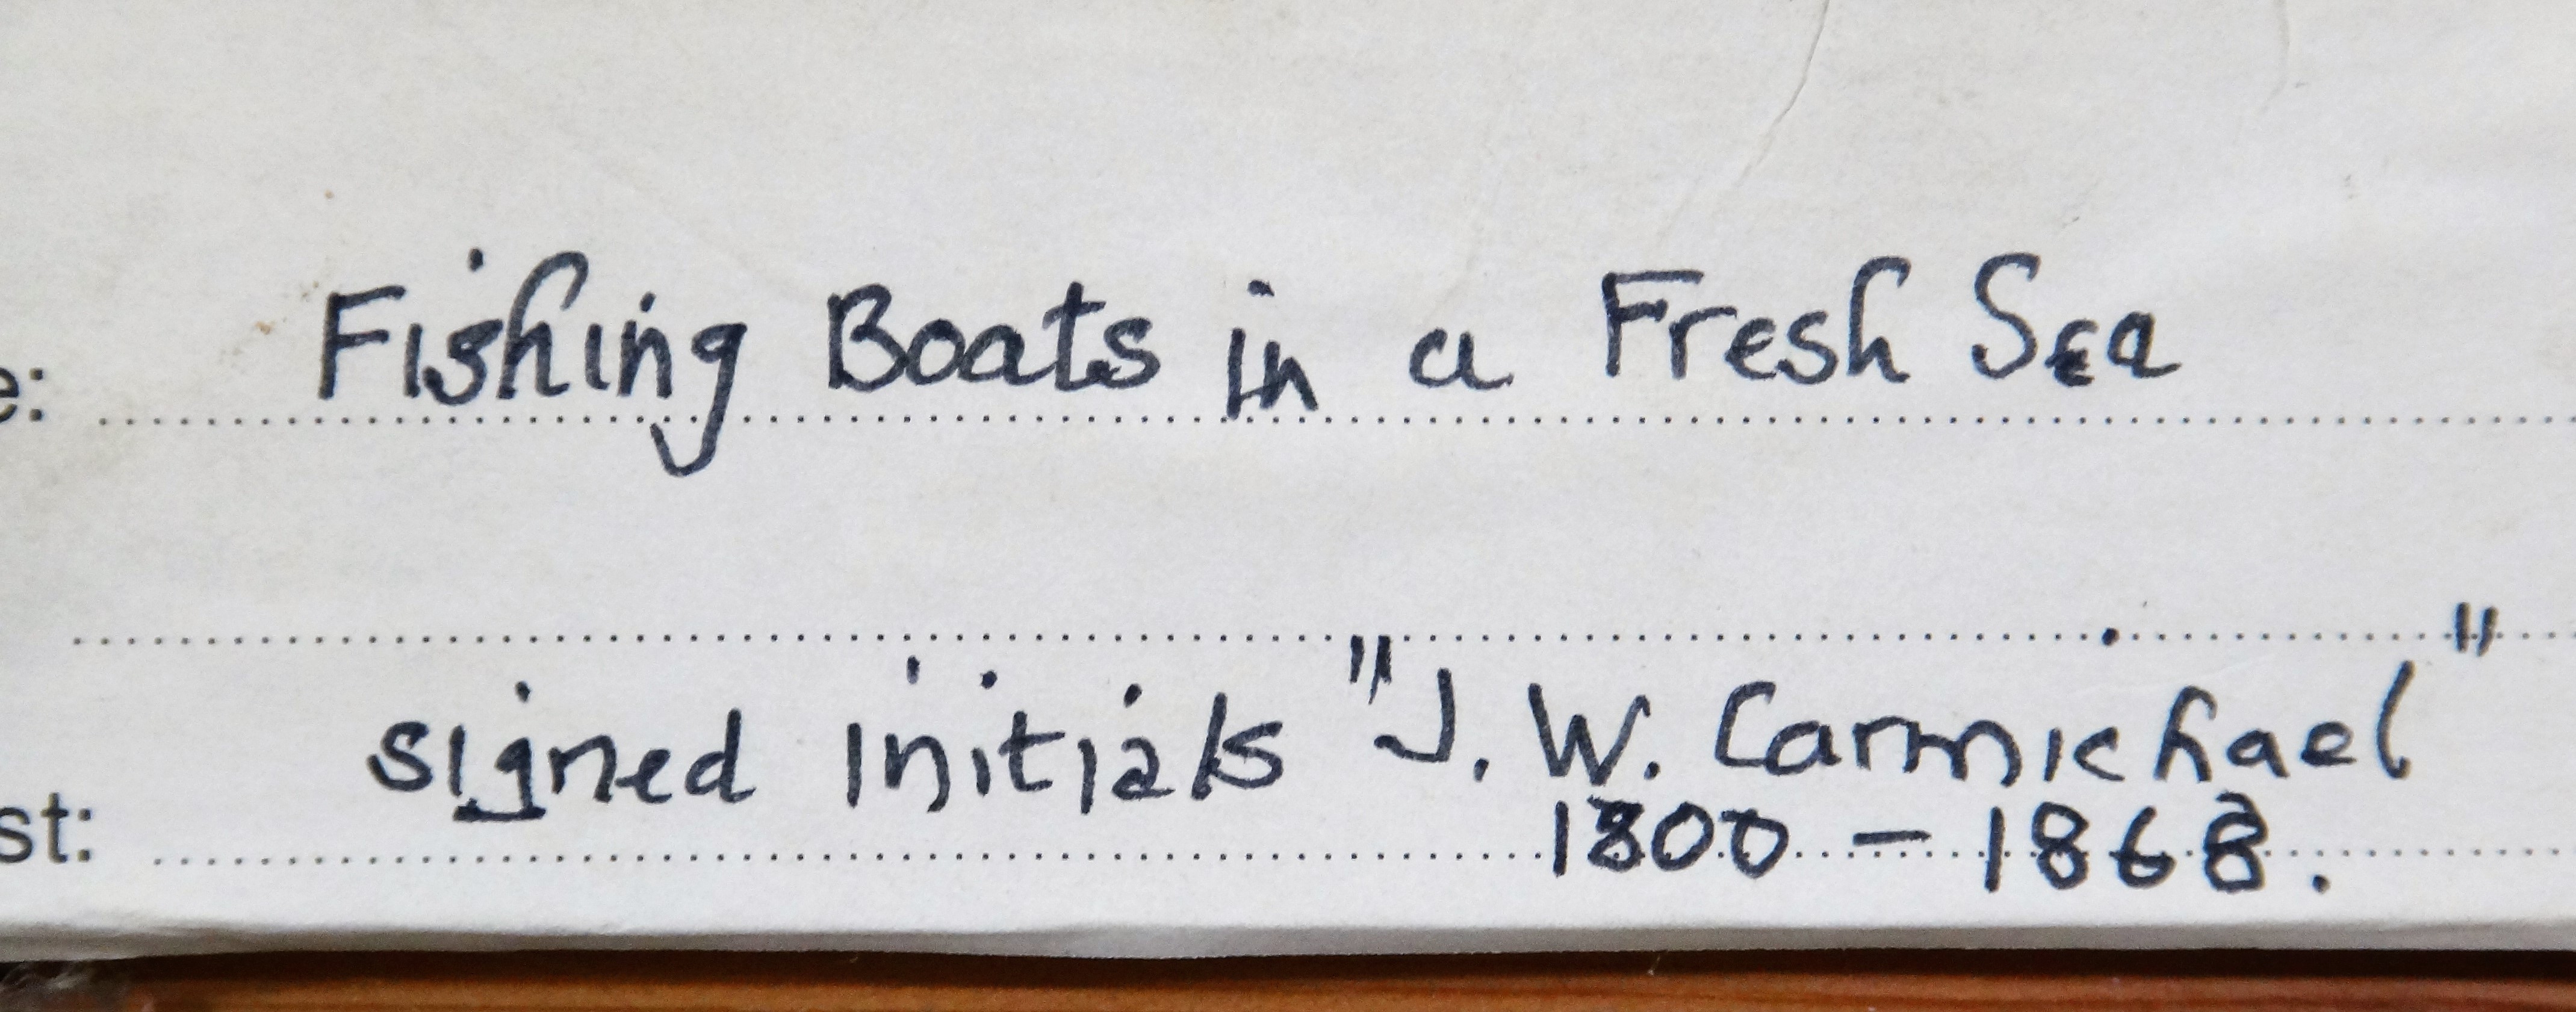 e: Fishing Boats in a Fresh Sea
signed initials "J. W. Carmichael"
st: 1800 – 1868.